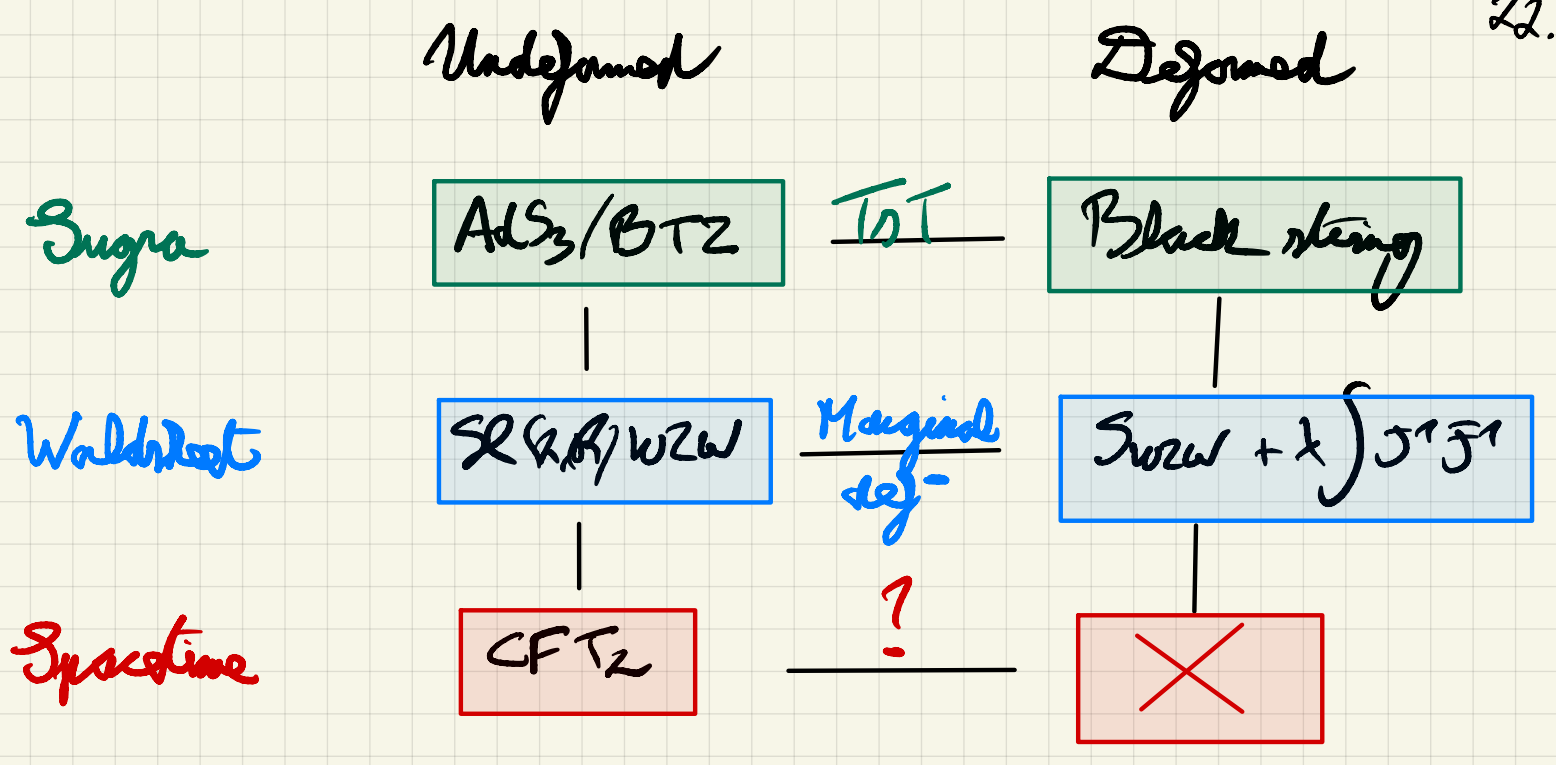 22.
Undeformed Deformed
Sugra AdS3/BTZ TsT Black string
Worldsheet SL(2,R) WZW Marginal def- SWZW + λ∫J¹J̄¹
Spacetime CFT2 ?